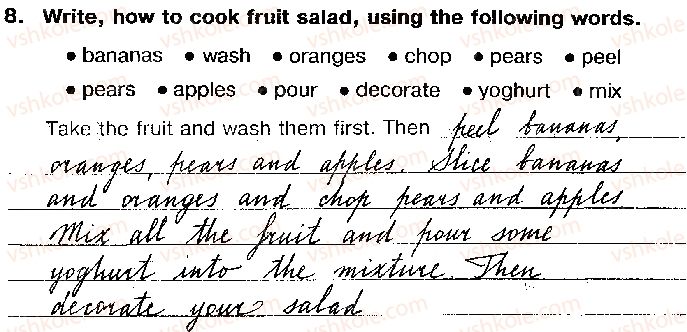 8. Write, how to cook fruit salad, using the following words.
• bananas • wash • oranges • chop • pears • peel
• pears • apples • pour • decorate • yoghurt • mix
Take the fruit and wash them first. Then peel bananas,
oranges, pears and apples. Slice bananas
and oranges and chop pears and apples
Mix all the fruit and pour some
yoghurt into the mixture. Then
decorate your salad